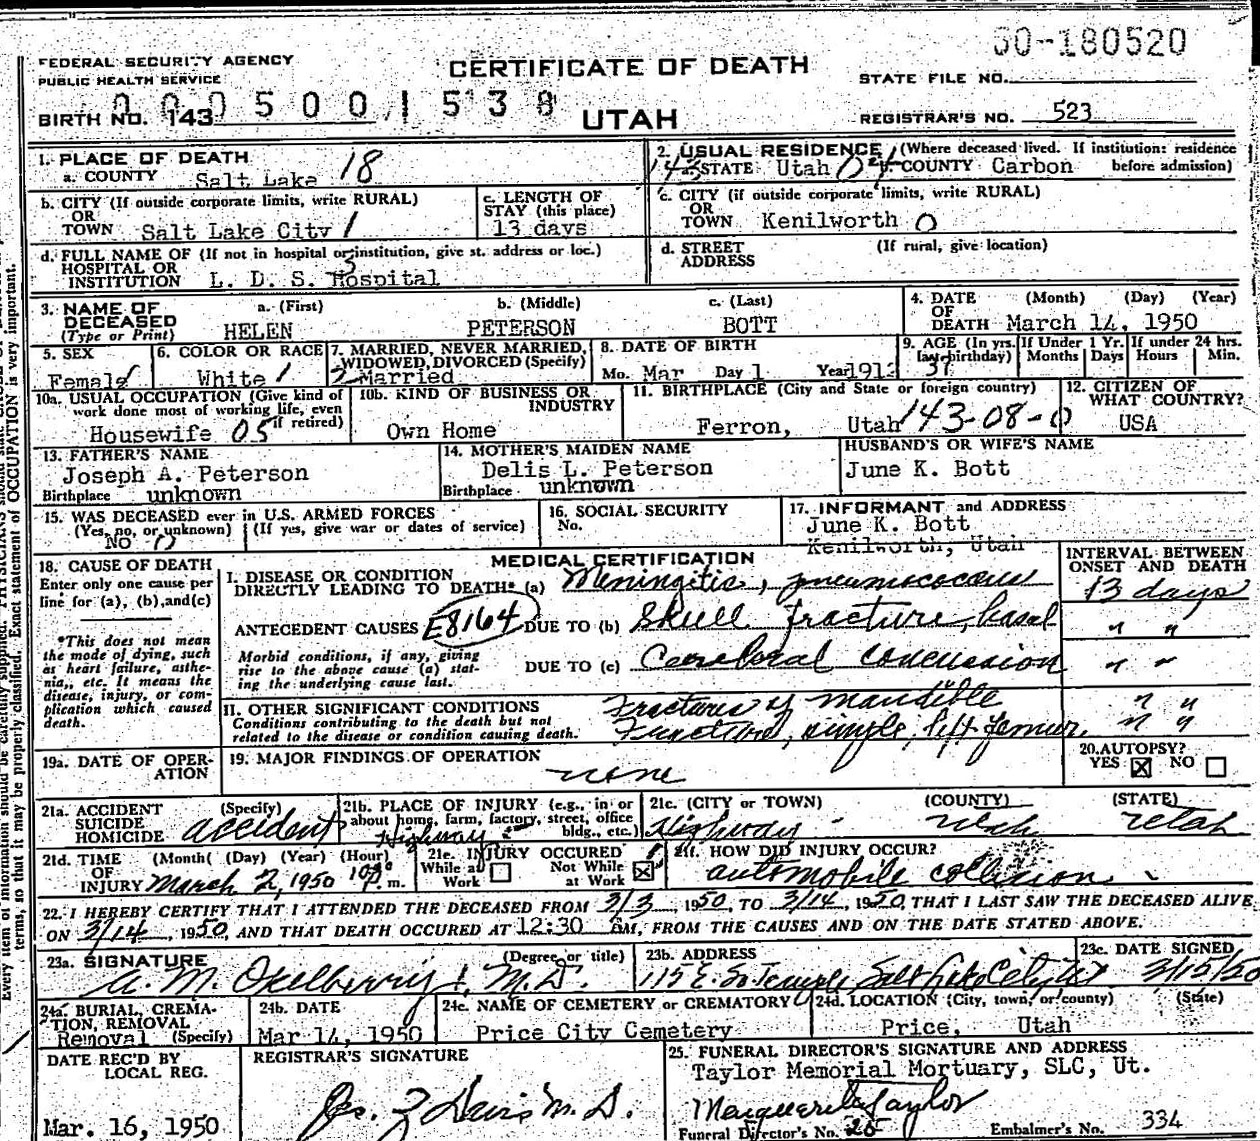 50-180520
FEDERAL SECURITY AGENCY
PUBLIC HEALTH SERVICE
CERTIFICATE OF DEATH
STATE FILE NO.
0 0 0 5 0 0 1 5 3 8
BIRTH NO. 143
UTAH
REGISTRAR'S NO. 523
1. PLACE OF DEATH
a. COUNTY Salt Lake 18
2. USUAL RESIDENCE (Where deceased lived. If institution: residence before admission)
143 STATE Utah 04 COUNTY Carbon
b. CITY (If outside corporate limits, write RURAL)
OR
TOWN Salt Lake City 1
c. LENGTH OF
STAY (this place)
13 days
c. CITY (if outside corporate limits, write RURAL)
OR
TOWN Kenilworth 0
d. FULL NAME OF (If not in hospital or institution, give st. address or loc.)
HOSPITAL OR
INSTITUTION L. D. S. Hospital
d. STREET (If rural, give location)
ADDRESS
3. NAME OF
DECEASED
(Type or Print)
a. (First) b. (Middle) c. (Last)
HELEN PETERSON BOTT
4. DATE (Month) (Day) (Year)
OF
DEATH March 14, 1950
5. SEX
Female
6. COLOR OR RACE
White 1
7. MARRIED, NEVER MARRIED,
WIDOWED, DIVORCED (Specify)
2 Married
8. DATE OF BIRTH
Mo. Mar Day 1 Year 1913
9. AGE (In yrs. last birthday) 37
If Under 1 Yr. Months Days
If under 24 hrs. Hours Min.
10a. USUAL OCCUPATION (Give kind of
work done most of working life, even
if retired)
Housewife 05
10b. KIND OF BUSINESS OR
INDUSTRY
Own Home
11. BIRTHPLACE (City and State or foreign country)
Ferron, Utah 143-08-0
12. CITIZEN OF
WHAT COUNTRY?
USA
13. FATHER'S NAME
Joseph A. Peterson
Birthplace unknown
14. MOTHER'S MAIDEN NAME
Delis L. Peterson
Birthplace unknown
HUSBAND'S OR WIFE'S NAME
June K. Bott
15. WAS DECEASED ever in U.S. ARMED FORCES
(Yes, no, or unknown) (If yes, give war or dates of service)
No 0
16. SOCIAL SECURITY
No.
17. INFORMANT and ADDRESS
June K. Bott
Kenilworth, Utah
18. CAUSE OF DEATH
Enter only one cause per
line for (a), (b), and (c)
*This does not mean
the mode of dying, such
as heart failure, asthe-
nia, etc. It means the
disease, injury, or com-
plication which caused
death.
MEDICAL CERTIFICATION
INTERVAL BETWEEN
ONSET AND DEATH
I. DISEASE OR CONDITION
DIRECTLY LEADING TO DEATH* (a) Meningitis, pneumococcus 13 days
ANTECEDENT CAUSES E8164 DUE TO (b) Skull fracture, basal " "
Morbid conditions, if any, giving
rise to the above cause (a) stat-
ing the underlying cause last.
DUE TO (c) Cerebral concussion " "
II. OTHER SIGNIFICANT CONDITIONS
Conditions contributing to the death but not
related to the disease or condition causing death.
Fractures of mandible " "
Fracture, simple, left femur, " "
19a. DATE OF OPER-
ATION
19. MAJOR FINDINGS OF OPERATION
none
20. AUTOPSY?
YES ☒ NO ☐
21a. ACCIDENT (Specify)
SUICIDE
HOMICIDE accident
21b. PLACE OF INJURY (e.g., in or
about home, farm, factory, street, office
bldg., etc.)
Highway
21c. (CITY or TOWN) (COUNTY) (STATE)
Highway Utah Utah
21d. TIME (Month) (Day) (Year) (Hour)
OF
INJURY March 2, 1950 P. m.
21e. INJURY OCCURED
While at Work ☐ Not While at Work ☒
21f. HOW DID INJURY OCCUR?
automobile collision
22. I HEREBY CERTIFY THAT I ATTENDED THE DECEASED FROM 3/3, 1950, TO 3/14, 1950, THAT I LAST SAW THE DECEASED ALIVE
ON 3/14, 1950, AND THAT DEATH OCCURED AT 12:30 AM, FROM THE CAUSES AND ON THE DATE STATED ABOVE.
23a. SIGNATURE (Degree or title)
A. M. M.D.
23b. ADDRESS
115 E. So Temple, Salt Lake City
23c. DATE SIGNED
3/15/50
24a. BURIAL, CREMA-
TION, REMOVAL
Removal (Specify)
24b. DATE
Mar 14, 1950
24c. NAME OF CEMETERY or CREMATORY
Price City Cemetery
24d. LOCATION (City, town, or county) (State)
Price, Utah
DATE REC'D BY
LOCAL REG.
Mar. 16, 1950
REGISTRAR'S SIGNATURE
M.D.
25. FUNERAL DIRECTOR'S SIGNATURE AND ADDRESS
Taylor Memorial Mortuary, SLC, Ut.
Marguerite Taylor
Funeral Director's No. 26 Embalmer's No. 334